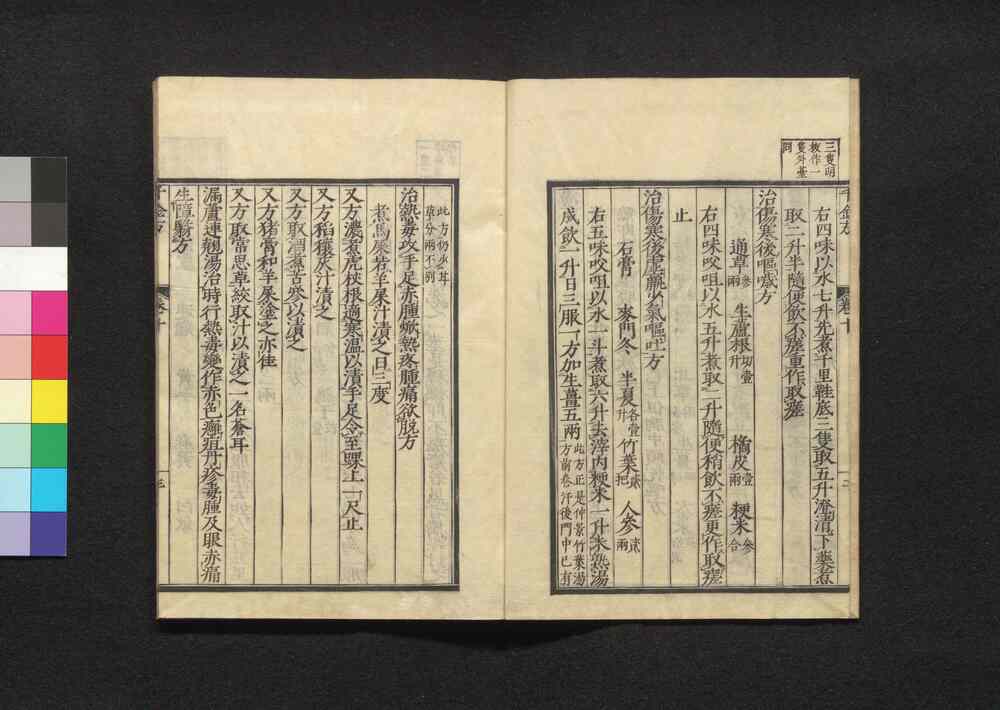 三隻明
板作一
隻外臺
同
千金方 卷十
右四味以水七升先煮千里鞋底三隻取五升澄清下藥煮
取二升半隨便飲不瘥重作取瘥
治傷寒後嘔噦方
通草三兩 生蘆根切壹升 橘皮壹兩 粳米三合
右四味㕮咀以水五升煮取二升隨便稍飲不瘥更作取瘥
止
治傷寒後虛羸少氣嘔吐方
石膏 麥門冬 半夏各壹升 竹葉貳把 人參貳兩
右五味㕮咀以水一斗煮取六升去滓內粳米一升米熟湯
成飲一升日三服一方加生薑五兩此方正是仲景竹葉湯方前卷汗後門中已有
此方仍少耳
草分兩不列
治熱毒攻手足赤腫焮熱疼腫痛欲脫方
煮馬屎若羊屎汁漬之日三度
又方濃煮虎杖根適寒溫以漬手足令至踝上一尺止
又方稻穰灰汁漬之
又方取酒煮苦參以漬之
又方猪膏和羊屎塗之亦佳
又方取常思草絞取汁以漬之一名蒼耳
漏蘆連翹湯治時行熱毒變作赤色癰疽丹疹毒腫及眼赤痛
生障翳方
千金方 卷十